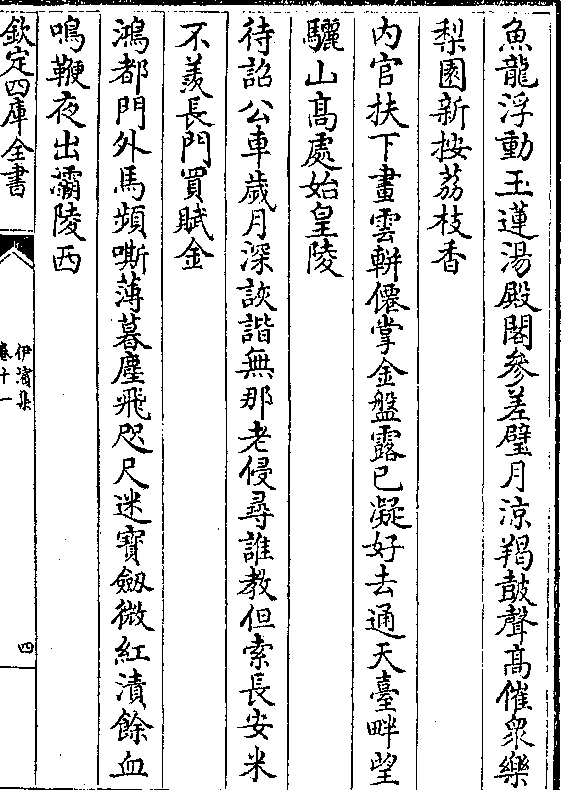 魚龍浮動玉蓮湯殿閣參差璧月涼羯鼓聲髙催衆樂
梨園新按荔枝香
内官扶下畫雲軿僊掌金盤露已凝好去通天臺畔望
驪山髙處始皇陵
待詔公車歲月深詼諧無那老侵尋誰教但索長安米
不羨長門買賦金
鴻都門外馬頻嘶薄暮塵飛咫尺迷寶劒微紅漬餘血
鳴鞭夜出灞陵西
欽定四庫全書
伊濱集
卷十一
四